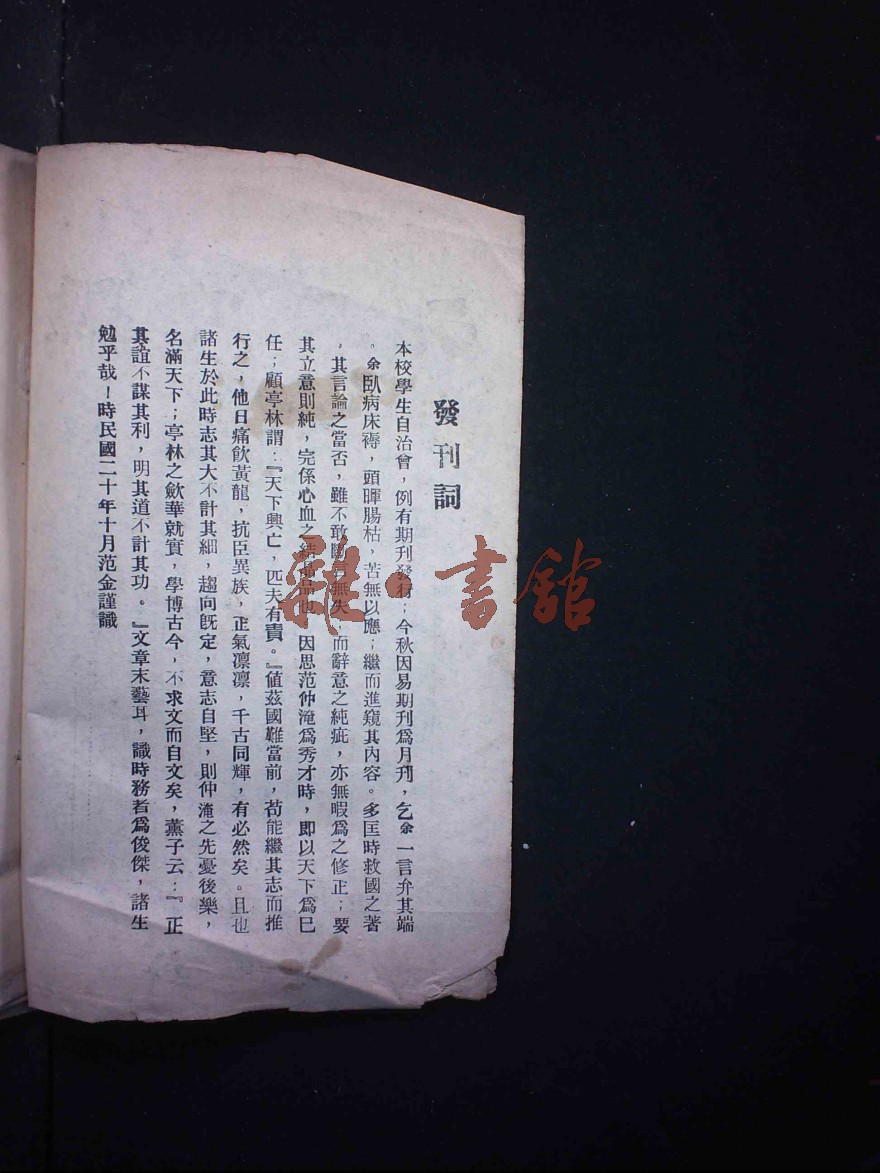 發刊詞
本校學生自治會，例有期刊發行；今秋因易期刊爲月刋，乞余一言弁其端
。余臥病床褥，頭暉腸枯，苦無以應；繼而進窺其內容。多匡時救國之著
，其言論之當否，雖不敢斷言無失，而辭意之純疵，亦無暇爲之修正；要
其立意則純，完係心血之結晶品也，因思范仲淹爲秀才時，即以天下爲已
任；顧亭林謂：『天下興亡，匹夫有責。』値茲國難當前，苟能繼其志而推
行之，他日痛飲黃龍，抗臣異族，正氣凛凛，千古同輝，有必然矣。且也
諸生於此時志其大不計其細，趨向旣定，意志自堅，則仲淹之先憂後樂，
名滿天下；亭林之歛華就實，學博古今，不求文而自文矣，薰子云：『正
其誼不謀其利，明其道不計其功。』文章末藝耳，識時務者爲俊傑，諸生
勉乎哉！時民國二十年十月范金謹識
雜·書舘